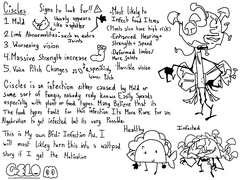 Circles
Signs to look for!! ⚠
1. Mold
Usually appears like a nightshade
2. Limb Abnormalities: such as extra Joints
3. Worsening vision
4. Massive Strength increase
5. Voice Pitch Changes Especially lower Pitch
-Most likely to infect food Items (Plants also have high risk)
-Enhanced Hearing+ Strength+Speed
-Deformed limbs/ More Joints
-Horrible vision
Circles is an infection either caused by Mold or some sort of Fungus, nobody rlly knows. Easily Spreads especially with plant or food types. Many Believe that its
The food types taste for this infection. It's More Rare for an Algebralien to get infected but its very Possible
This is My own Bfdi Infection Au, I will most likley turn this into a wattpad story if I get the Motivation
Healthy
Infected